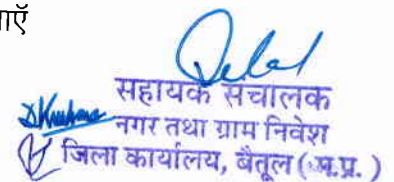 ाएँ
सहायक संचालक
नगर तथा ग्राम निवेश
जिला कार्यालय, बैतूल (म.प्र.)